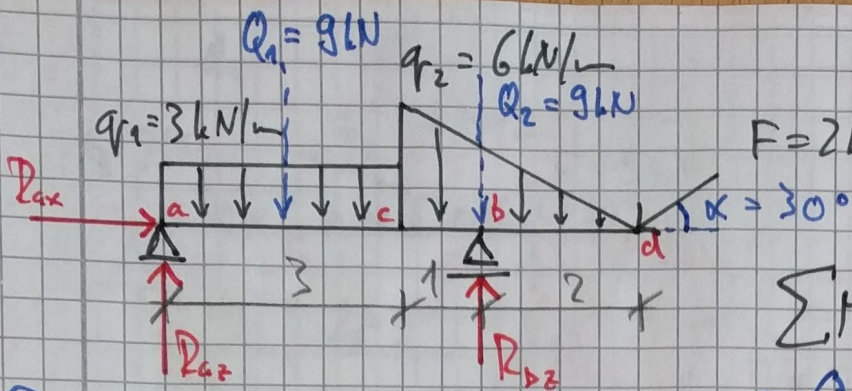 Q₁ = 9kN
q₂ = 6kN/m
Q₂ = 9kN
q₁ = 3kN/m
F = 2
Rax
a
c
b
α = 30°
d
3
1
2
Σ
Raz
Rbz